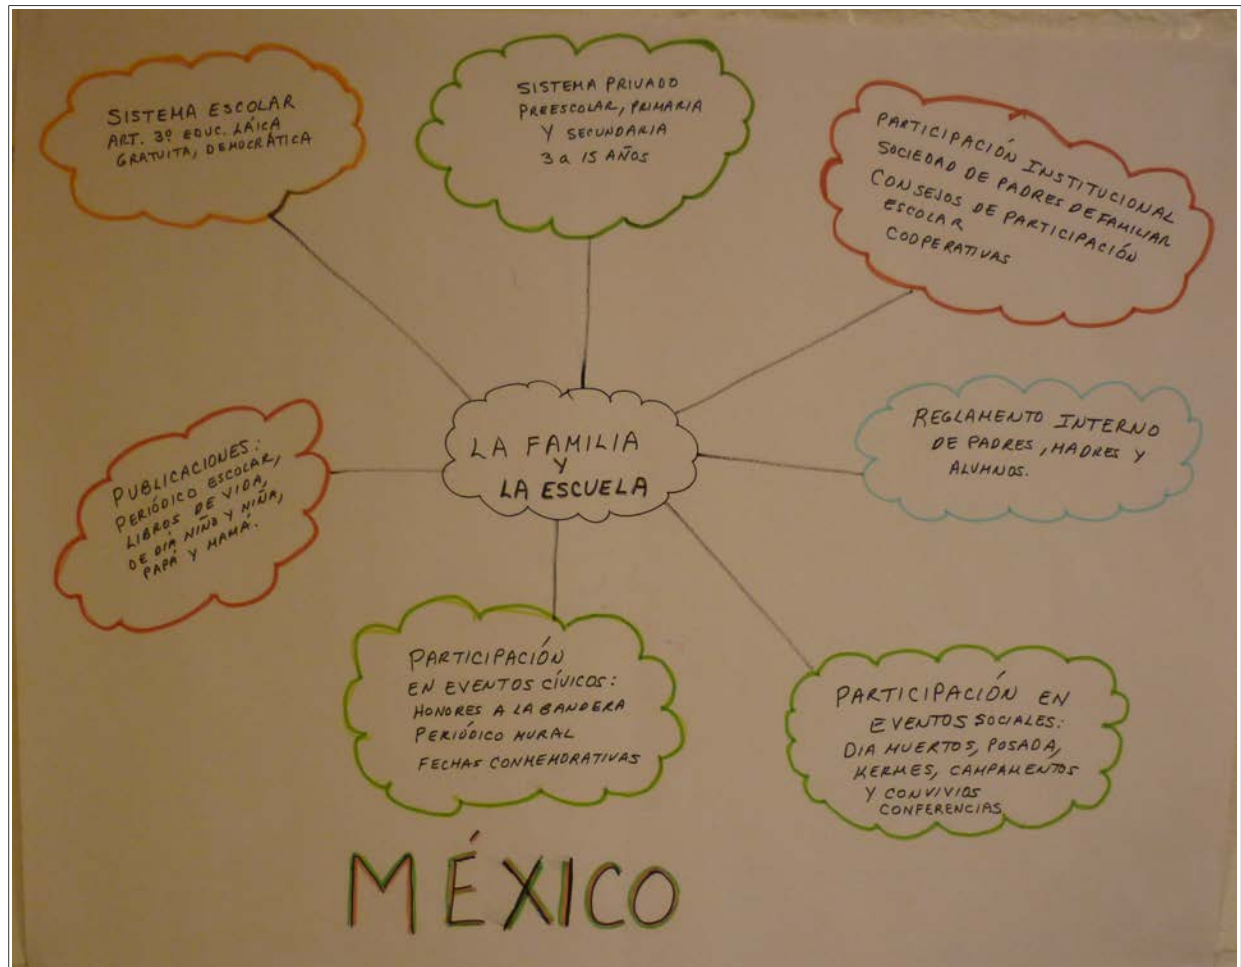 SISTEMA ESCOLAR
ART. 3º EDUC. LÁICA
GRATUITA, DEMOCRÁTICA
SISTEMA PRIVADO
PREESCOLAR, PRIMARIA
Y SECUNDARIA
3 a 15 AÑOS
PARTICIPACIÓN INSTITUCIONAL
SOCIEDAD DE PADRES DE FAMILIAR
CONSEJOS DE PARTICIPACIÓN
ESCOLAR
COOPERATIVAS
LA FAMILIA
Y
LA ESCUELA
REGLAMENTO INTERNO
DE PADRES, MADRES Y
ALUMNOS.
PUBLICACIONES:
PERIÓDICO ESCOLAR,
LIBROS DE VIDA,
DE DIÁ NIÑO Y NIÑA,
PAPÁ Y MAMÁ.
PARTICIPACIÓN
EN EVENTOS CÍVICOS:
HONORES A LA BANDERA
PERIÓDICO MURAL
FECHAS CONMEMORATIVAS
PARTICIPACIÓN EN
EVENTOS SOCIALES:
DIA MUERTOS, POSADA,
KERMES, CAMPAMENTOS
Y CONVIVIOS
CONFERENCIAS
MÉXICO